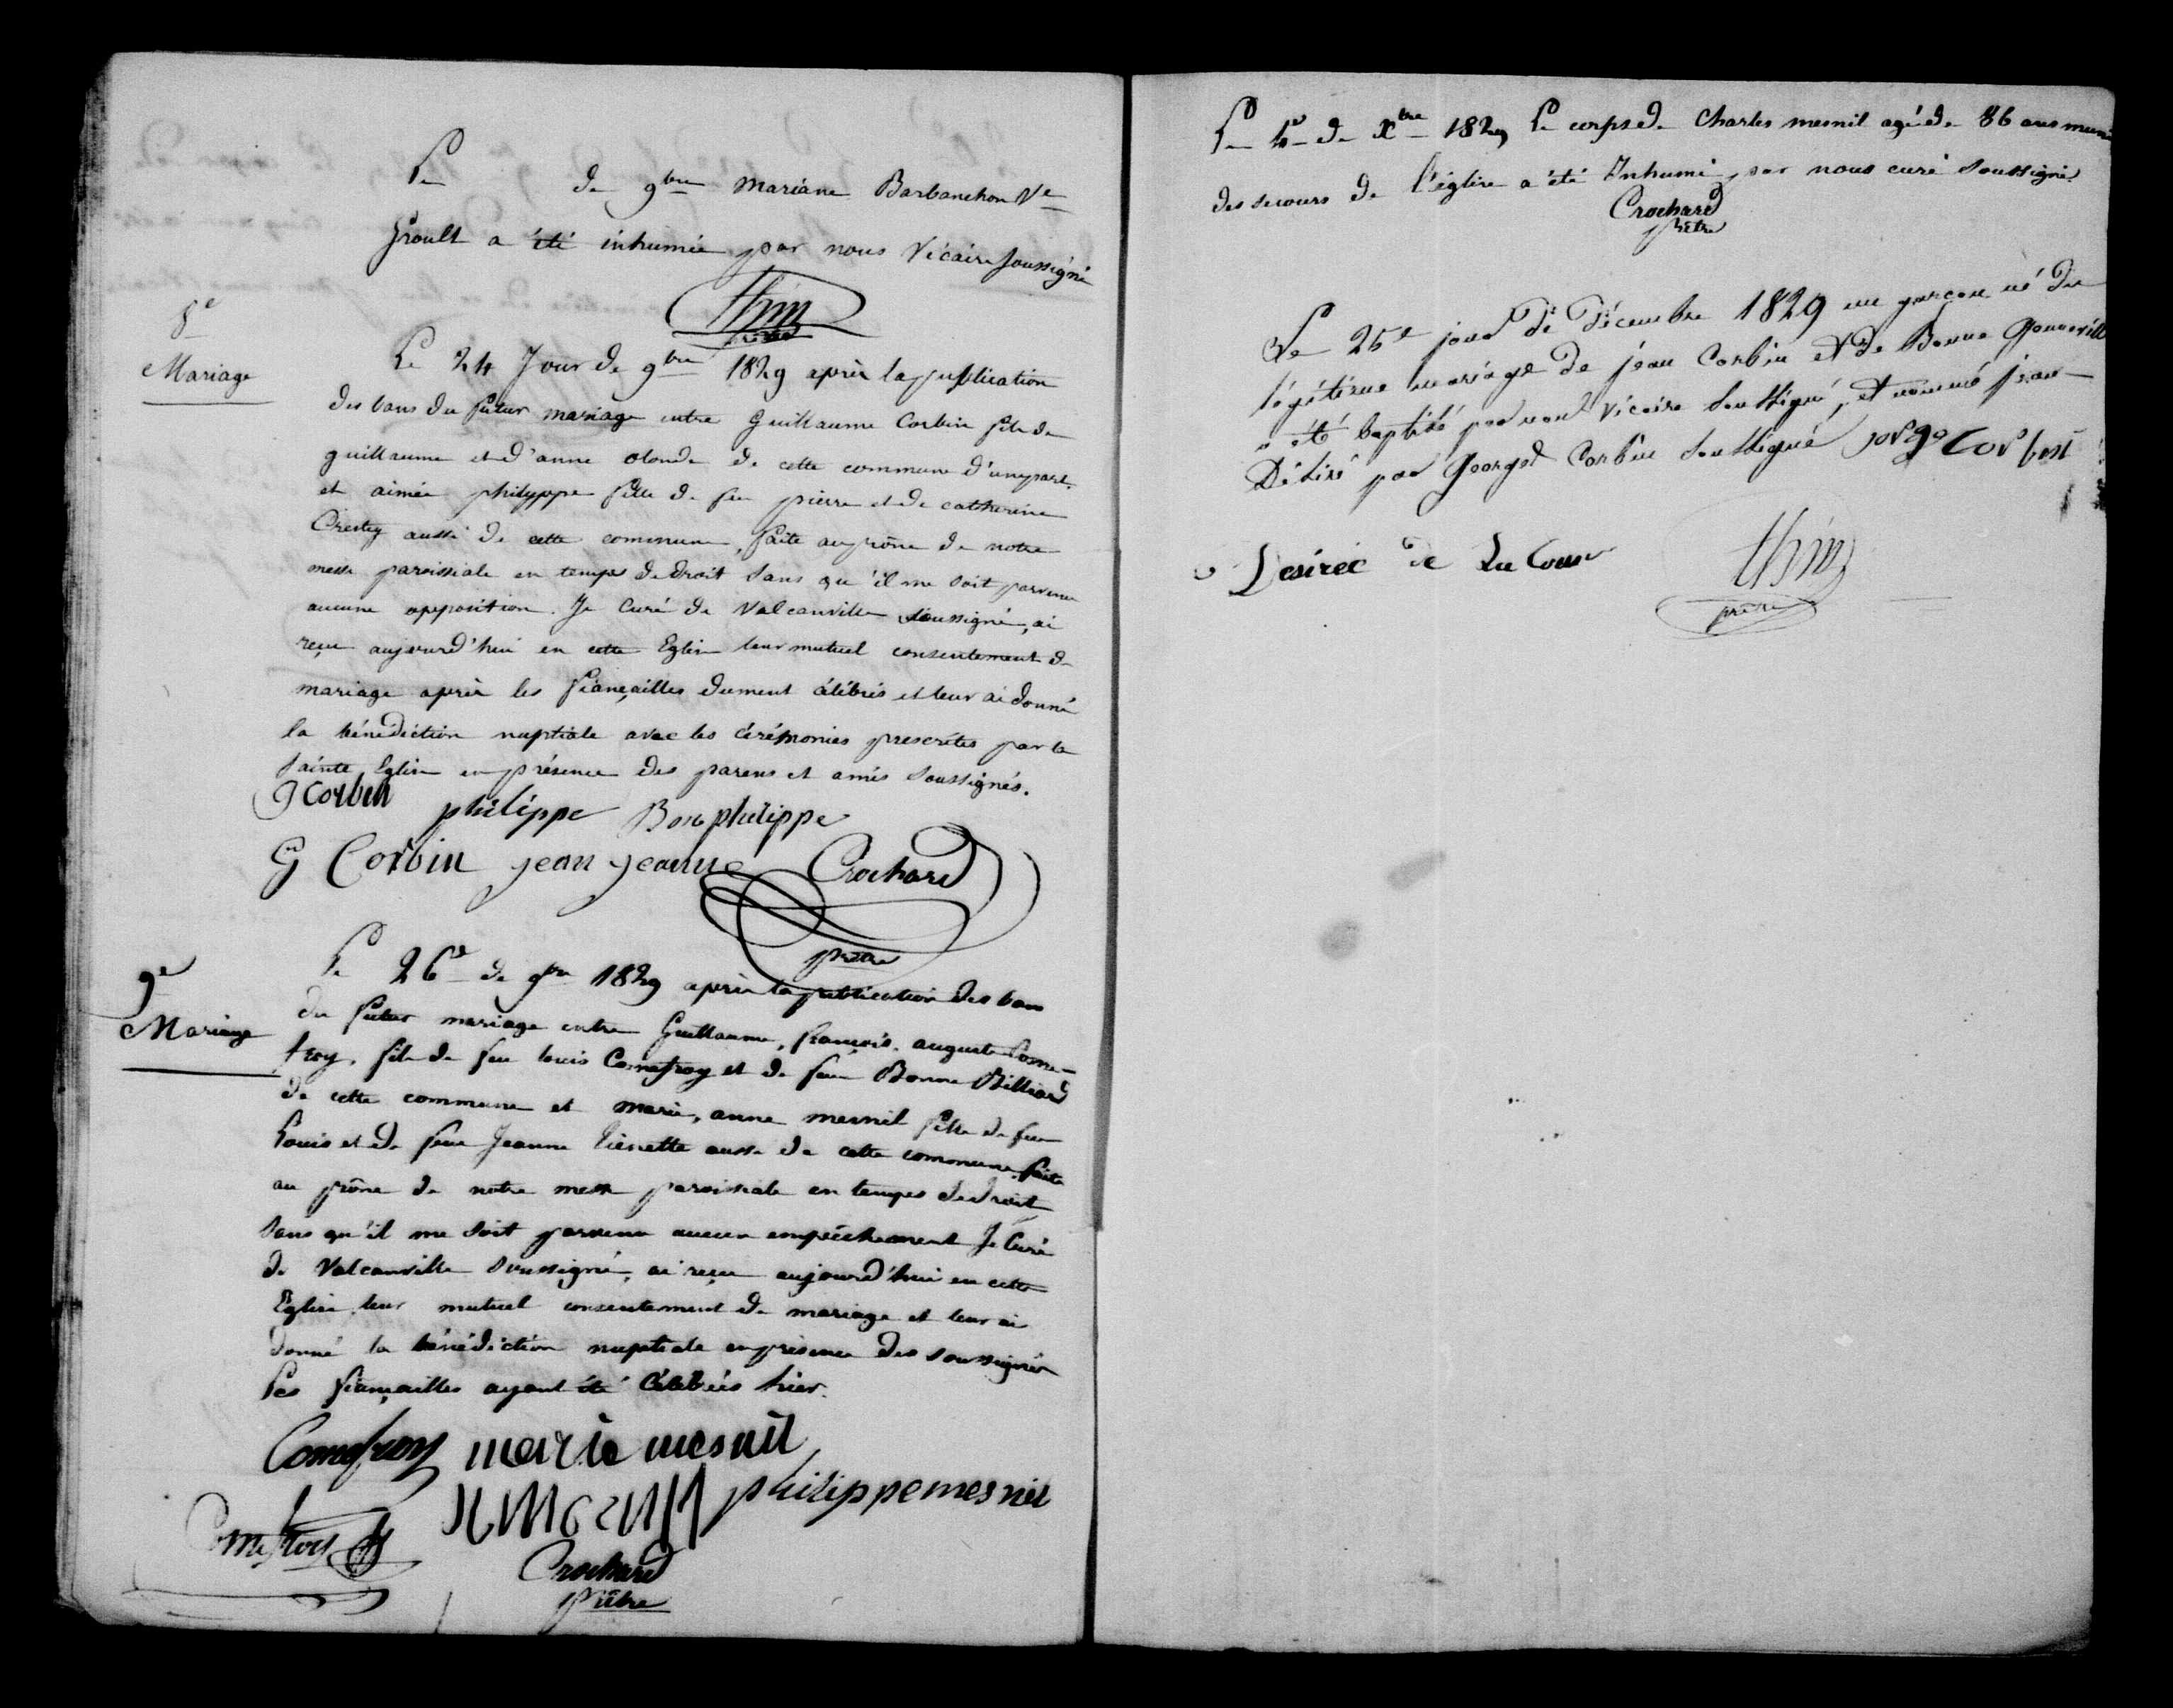 Le de 9bre mariane Barbanchon Ve
Groult a été inhumée par nous Vicaire soussigné
thin
prêtre
8e
Mariage
Le 24 Jour de 9bre 1829 après la publication
des bans du futur mariage entre Guillaume Corbin fils de
guillaume et d'anne olonde de cette commune d'une part.
et aimée philyppe fille de feu pierre et de catherine
Crestey aussi de cette commune, faite au prône de notre
messe paroissiale en temps de droit sans qu'il me soit parvenu
aucune opposition. Je Curé de Valcanville soussigné, ai
reçu aujourd'hui en cette Eglise leur mutuel consentement de
mariage après les fiançailles dument célébrés et leur ai donné
la bénédiction nuptiale avec les cérémonies prescrites par la
sainte Eglise en présence des parens et amis soussignés.
g corbin philippe Bon philippe
G Corbin jean jeanne Crochard
prêtre
9e
Mariage
Le 26e de 9bre 1829 après la publication des bans
du futur mariage entre Guillaume, françois, auguste Come-
froy, fils de feu louis Comefroy et de feue Bonne Billiard
de cette commune et marie, anne mesnil fille de feu
Louis et de feue Jeanne aussi de cette commune, faite
au prône de notre messe paroissiale en temps de droit
sans qu'il me soit parvenu aucun empêchement Je Curé
de Valcanville soussigné, ai reçu aujourd'hui en cette
Eglise leur mutuel consentement de mariage et leur ai
donné la bénédiction nuptiale en présence des soussignés
les fiançailles ayant été célébrées hier.
Comefroy marie mesnil
philippe mesnil
Comefroy
Crochard
prêtre
Le de Xbre 1829 Le corps de Charles mesnil agé de 86 ans muni
des secours de l'église a été Inhumé par nous curé soussigné.
Crochard
prêtre
Le 25e jour de décembre 1829 un garçon né du
légitime mariage de jean Corbin et de Bonne Gonneville
a été baptisé par nous vicaire soussigné, et nommé jean
Désiré par Georges Corbin soussigné
Desirée de La Cour
thin
prêtre